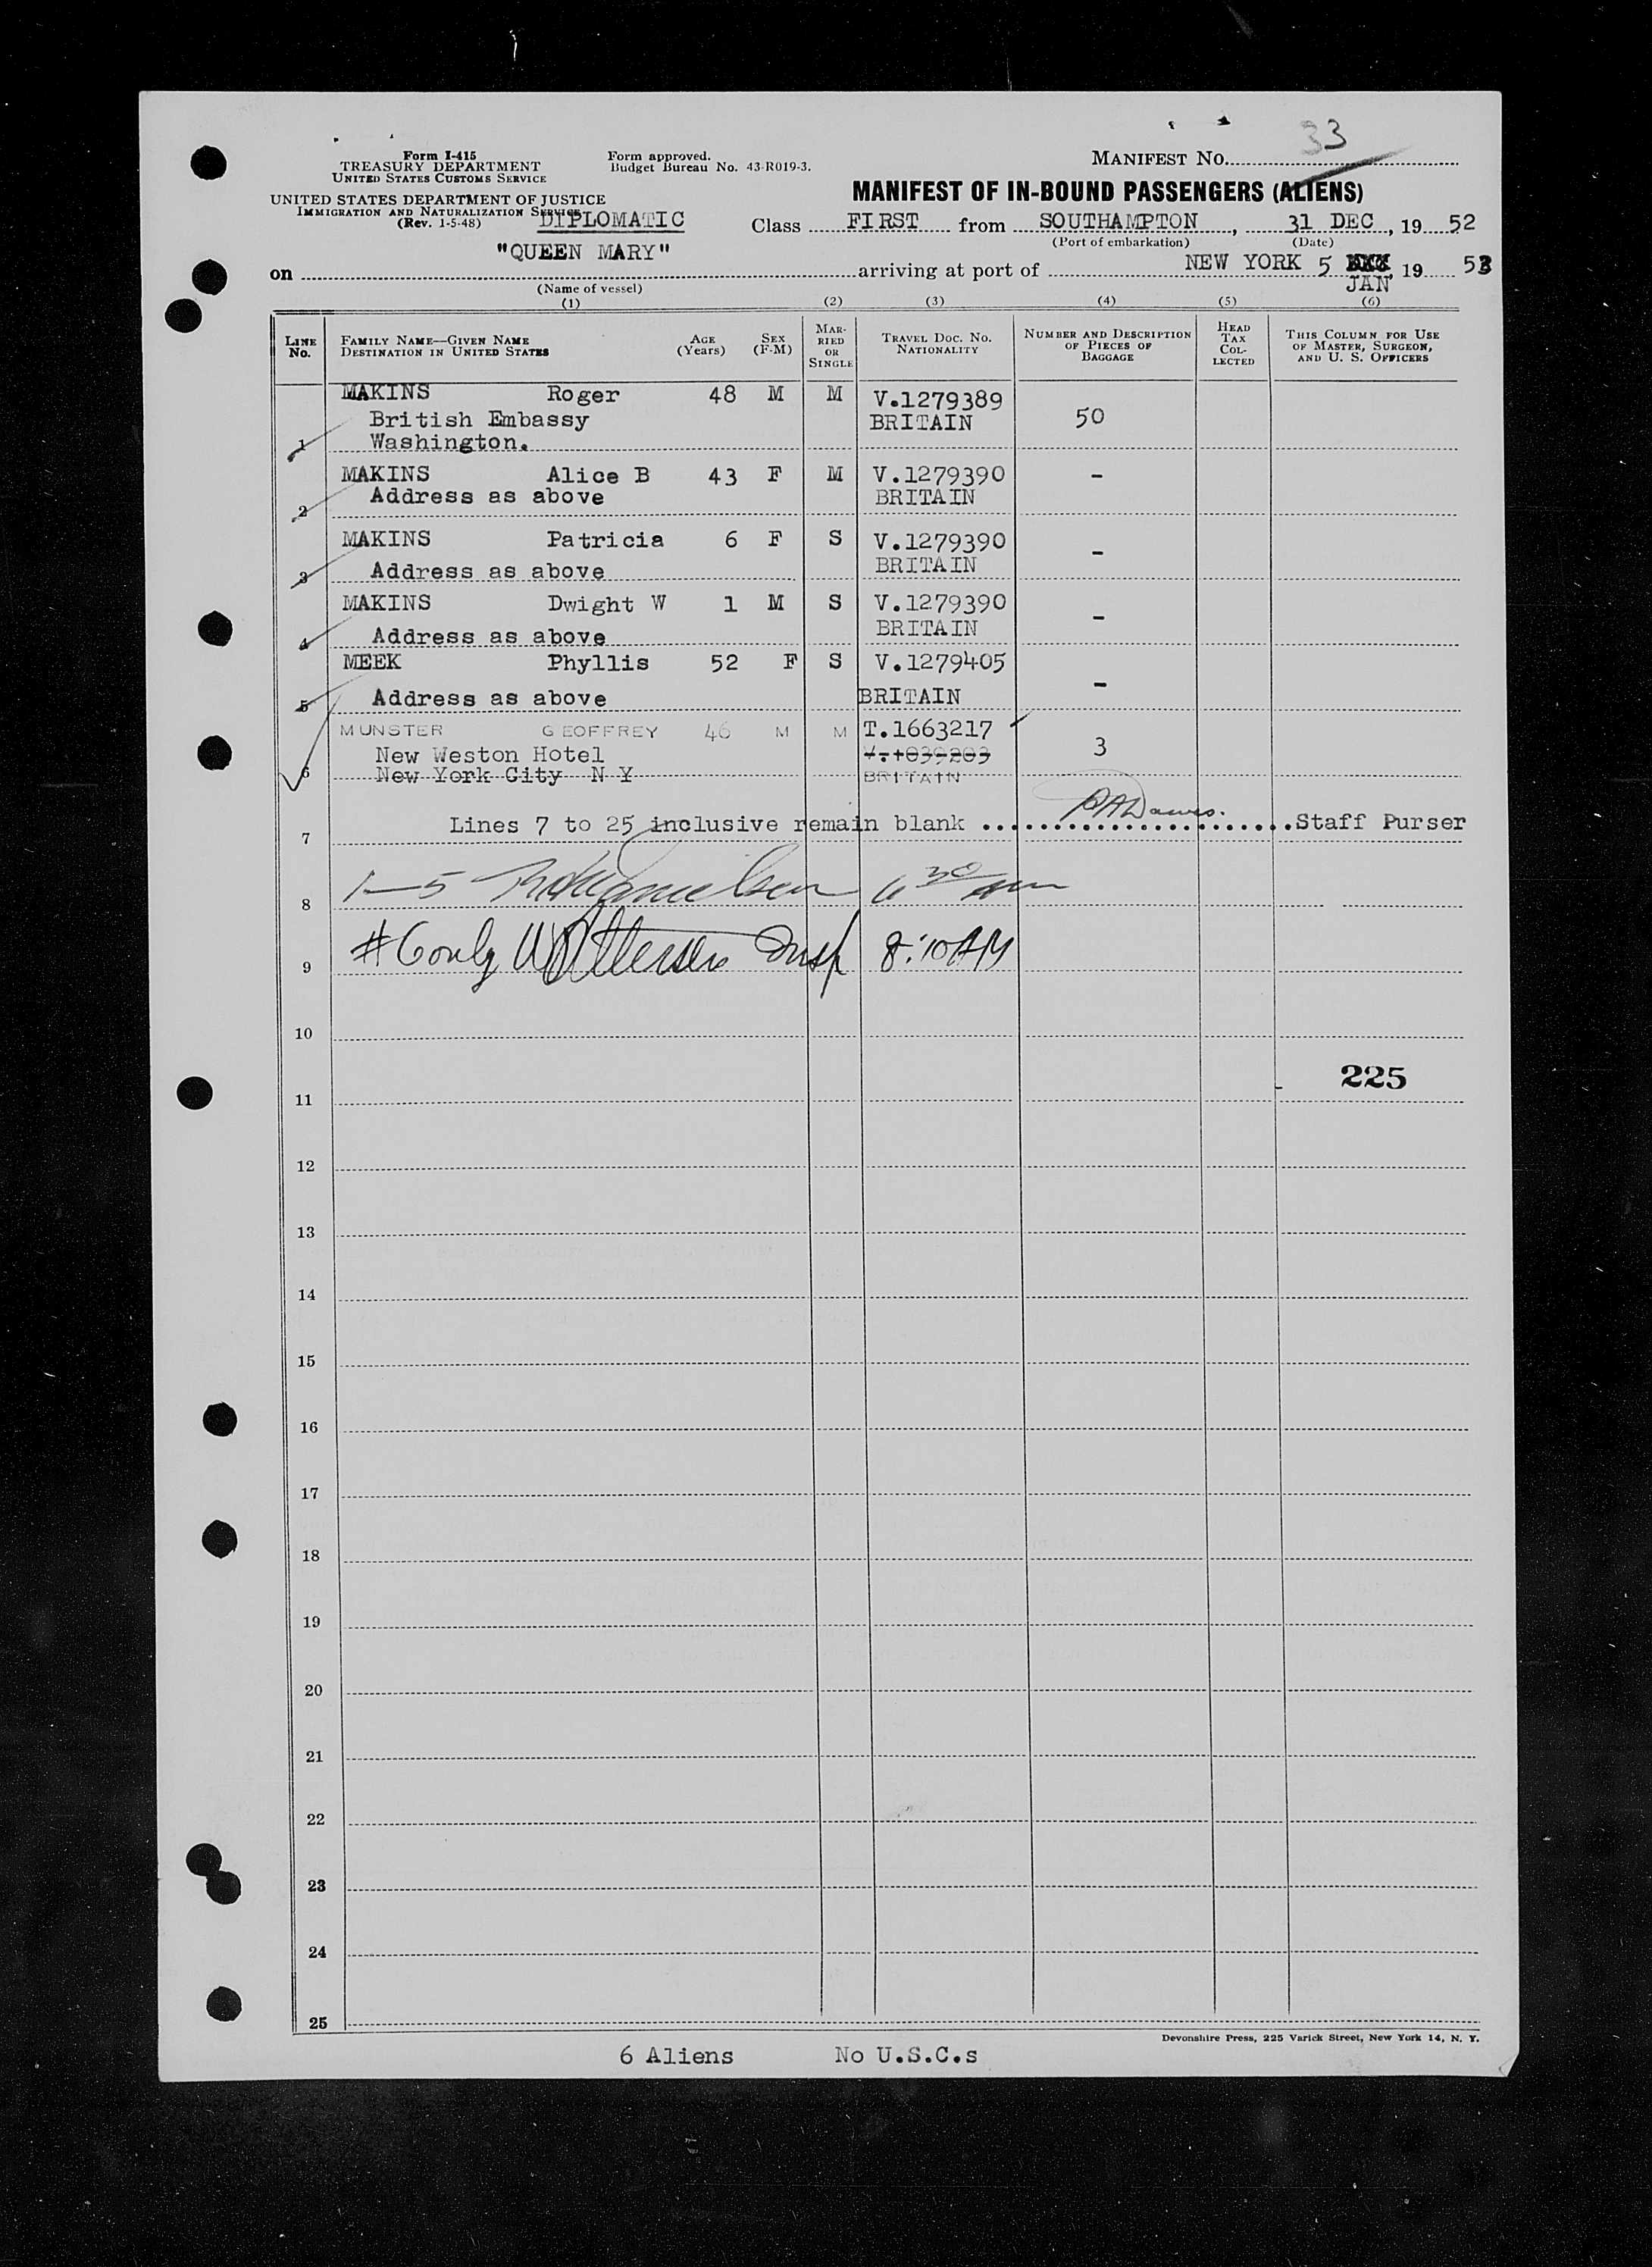 33
Form I-415
TREASURY DEPARTMENT
UNITED STATES CUSTOMS SERVICE
Form approved.
Budget Bureau No. 43-R019-3.
MANIFEST NO.
UNITED STATES DEPARTMENT OF JUSTICE
IMMIGRATION AND NATURALIZATION SERVICE
(Rev. 1-5-48)
DIPLOMATIC
MANIFEST OF IN-BOUND PASSENGERS (ALIENS)
Class FIRST from SOUTHAMPTON, 31 DEC, 19 52
(Port of embarkation) (Date)
on "QUEEN MARY" arriving at port of NEW YORK 5 JAN, 19 53
(Name of vessel)
(1) (2) (3) (4) (5) (6)
LINE NO. FAMILY NAME—GIVEN NAME DESTINATION IN UNITED STATES AGE (Years) SEX (F-M) MARRIED OR SINGLE TRAVEL DOC. NO. NATIONALITY NUMBER AND DESCRIPTION OF PIECES OF BAGGAGE HEAD TAX COLLECTED THIS COLUMN FOR USE OF MASTER, SURGEON, AND U. S. OFFICERS
MAKINS Roger 48 M M V.1279389
British Embassy BRITAIN 50
1 Washington.
MAKINS Alice B 43 F M V.1279390 -
2 Address as above BRITAIN
MAKINS Patricia 6 F S V.1279390 -
3 Address as above BRITAIN
MAKINS Dwight W 1 M S V.1279390 -
4 Address as above BRITAIN
MEEK Phyllis 52 F S V.1279405 -
5 Address as above BRITAIN
MUNSTER GEOFFREY 46 M M T.1663217
New Weston Hotel 3
6 New York City N Y BRITAIN
7 Lines 7 to 25 inclusive remain blank ........................Staff Purser
8 1-5 6 30 am
9 #6 only Insp 8:10 AM
10
225
11
12
13
14
15
16
17
18
19
20
21
22
23
24
25
Devonshire Press, 225 Varick Street, New York 14, N. Y.
6 Aliens No U.S.C.s